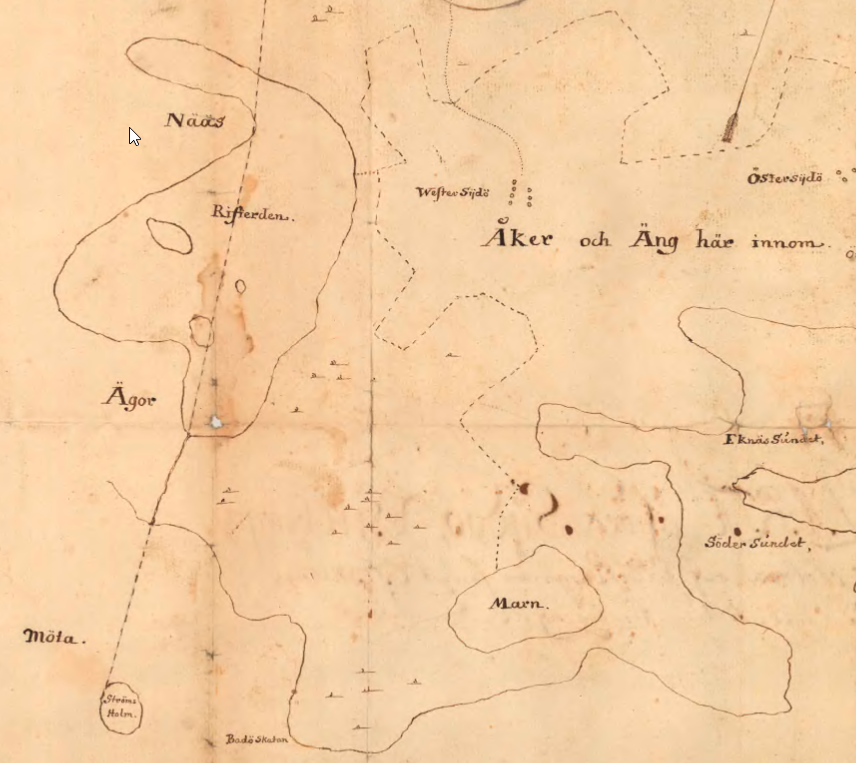 Nääs
Wester Sijdö
Östersijdö
Rifferden.
Åker och Äng här innom.
Ägor
Eknäs Sundet,
Söder Sundet,
Marn.
Möta.
Ströms
Holm.
Badö Skatan